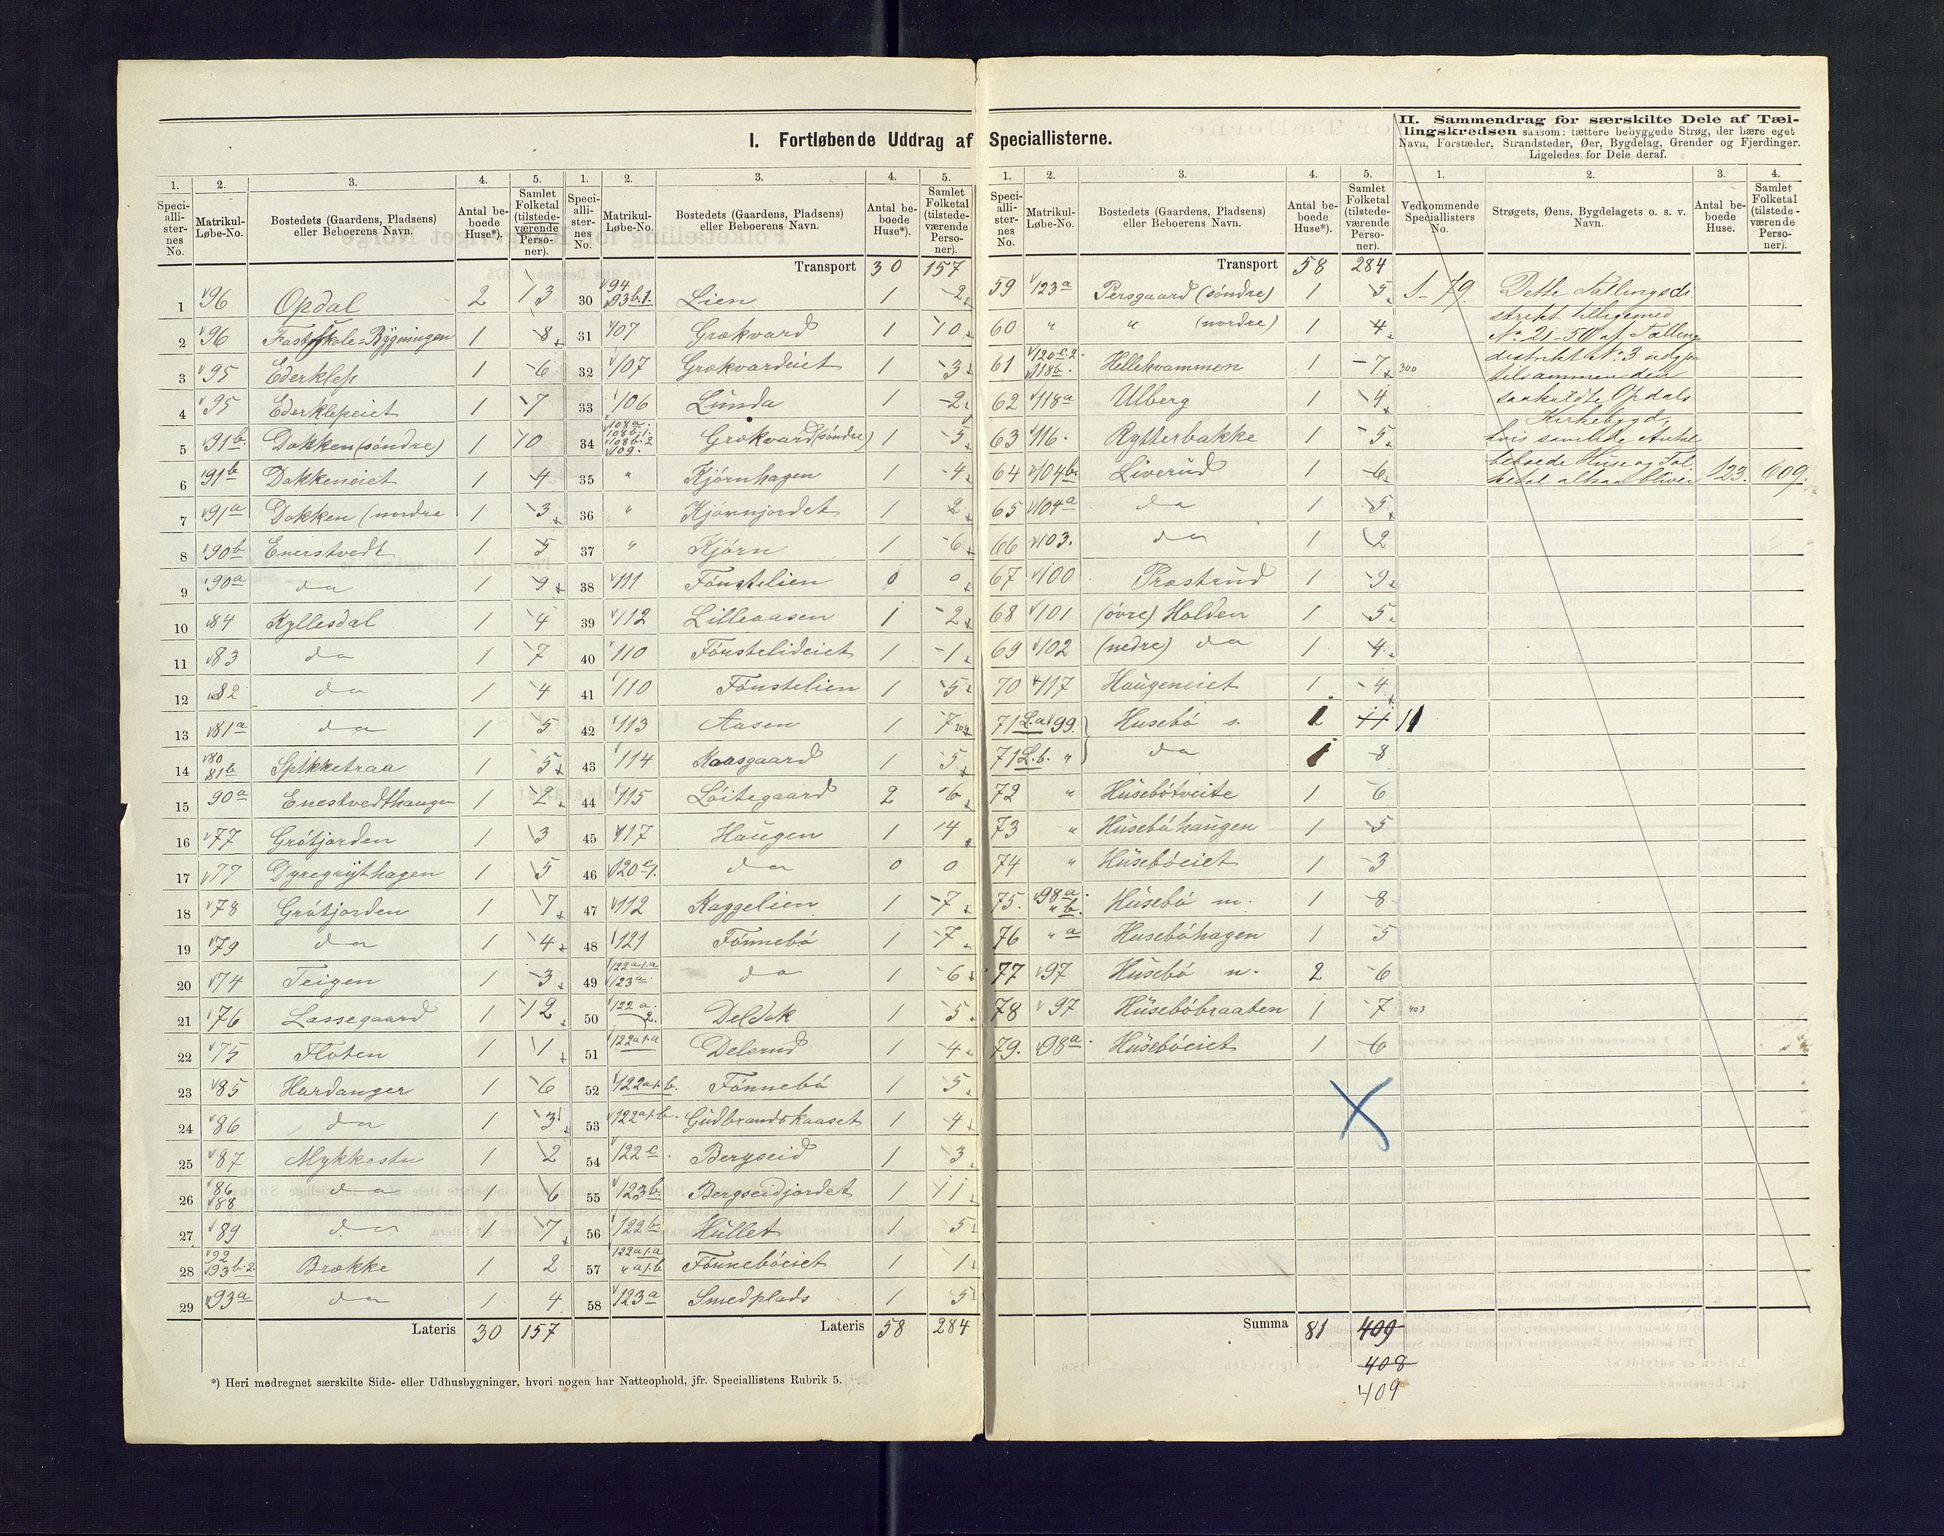 I. Fortløbende Uddrag af Speciallisterne.
II. Sammendrag for særskilte Dele af Tæl-
lingskredsen saasom: tættere bebyggede Strøg, der bære eget
Navn, Forstæder, Strandsteder, Øer, Bygdelag, Grender og Fjerdinger.
Ligeledes for Dele deraf.
1. 2. 3. 4. 5.
Speciallisternes No. Matrikul-Løbe-No. Bostedets (Gaardens, Pladsens) eller Beboerens Navn. Antal beboede Huse*). Samlet Folketal (tilstedeværende Personer).
1 96 Opdal 2 13
2 96 Fastskole=Bygningen 1 8
3 95 Ederklep 1 6
4 95 Ederklepeiet 1 7
5 91b. Dokken (søndre) 1 10
6 91b Dokkeneiet 1 4
7 91a Dokken (nordre 1 3
8 90b Enerstvedt 1 5
9 90a do 1 9
10 84 Kyllesdal 1 4
11 83 do 1 7
12 82 do 1 4
13 81a do 1 5
14 80 81b Spikketraa 1 5
15 90a Enestvedthaugen 1 2
16 77 Grötjorden 1 3
17 77 Dyregrythagen 1 5
18 78 Grötjorden 1 7
19 79 do 1 4
20 74 Teigen 1 3
21 76 Lassegaard 1 12
22 75 Floten 1 1
23 85 Hardanger 1 6
24 86 do 1 3
25 87 Mykkestu 1 2
26 86 88 do 1 6
27 89 do 1 7
28 92 93b.2. Brække 1 2
29 93a do 1 4
Lateris 30 157
1. 2. 3. 4. 5.
Speciallisternes No. Matrikul-Løbe-No. Bostedets (Gaardens, Pladsens) eller Beboerens Navn. Antal beboede Huse*). Samlet Folketal (tilstedeværende Personer).
Transport 30 157
30 94 93b.1. Lien 1 2
31 107 Grækvard 1 10
32 107 Grækvardeiet 1 3
33 106 Lunda 1 2
34 108a. 108b.1. 108b.2 109. Grækvard (søndre) 1 5
35 " Kjörnhagen 1 4
36 " Kjörnjordet 1 2
37 " Kjörn 1 6
38 111 Fönstelien 0 0
39 112 Lilleaasen 1 2
40 110 Fönstelideiet 1 1
41 110 Fönstelien 1 5
42 113 Aasen 1 7
43 114 Kaasgaard 1 5
44 115 Löitegaard 2 6
45 117 Haugen 1 4
46 120c1. do 0 0
47 112 Kaggelien 1 7
48 121 Fönnebö 1 7
49 122a1.a 123a do 1 6
50 122a.2. Deldok 1 5
51 122a1.a Delsrud 1 4
52 122a1.b. Fönnebö 1 5
53 122a1.b. Gudbrandskaaset 1 4
54 122c. Bergseid 1 3
55 123b. Bergseidjordet 1 11
56 122b. Hullet 1 5
57 122a1.a " a1.b Fönnebøeiet 1 1
58 123a Smedplads 1 5
Lateris 58 284
*) Heri medregnet særskilte Side- eller Udhusbygninger, hvori nogen har Natteophold, jfr. Speciallistens Rubrik 5.
1. 2. 3. 4. 5.
Speciallisternes No. Matrikul-Løbe-No. Bostedets (Gaardens, Pladsens) eller Beboerens Navn. Antal beboede Huse*). Samlet Folketal (tilstedeværende Personer).
Transport 58 284
59 123a Persgaard (söndre) 1 5
60 " " (nordre) 1 4
61 120c.2. 118b. Hellekvammen 1 7 300
62 118a Ulberg 1 4
63 116. Rytterbakke 1 5
64 104b. Liverud 1 6
65 104a do 1 5
66 103. do 1 2
67 100 Præstrud 1 9
68 101 (övre) Holden 1 5
69 102 (nedre) do 1 4
70 117 Haugeneiet 1 4
71 L.a 99. Husebö s. 1 11 11
71 L.b. " do 1 8
72 " Husebötveite 1 6
73 " Huseböhaugen 1 5
74 " Huseböeiet 1 3
75. 98a. " b. Husebö m. 1 8
76 " a Huseböhagen 1 5
77 97 Husebö n. 2 6
78 97 Huseböbraaten 1 7 403
79. 98a. Huseböeiet 1 6
Summa 81 409
408
409
1. 2. 3. 4.
Vedkommende Speciallisters No. Strøgets, Øens, Bygdelagets o. s. v. Navn. Antal beboede Huse. Samlet Folketal (tilstedeværende Personer).
1-79. Dette Tællingsdi
strikt tilligemed
No. 21-50 af Tælling
distrikt No. 3 udgjör
tilsammen den
saakaldte Opdals
Kirkebygd,
hvis samlede Antal
beboede Huse og Fol
ketal altsaa bliver 123. 609.